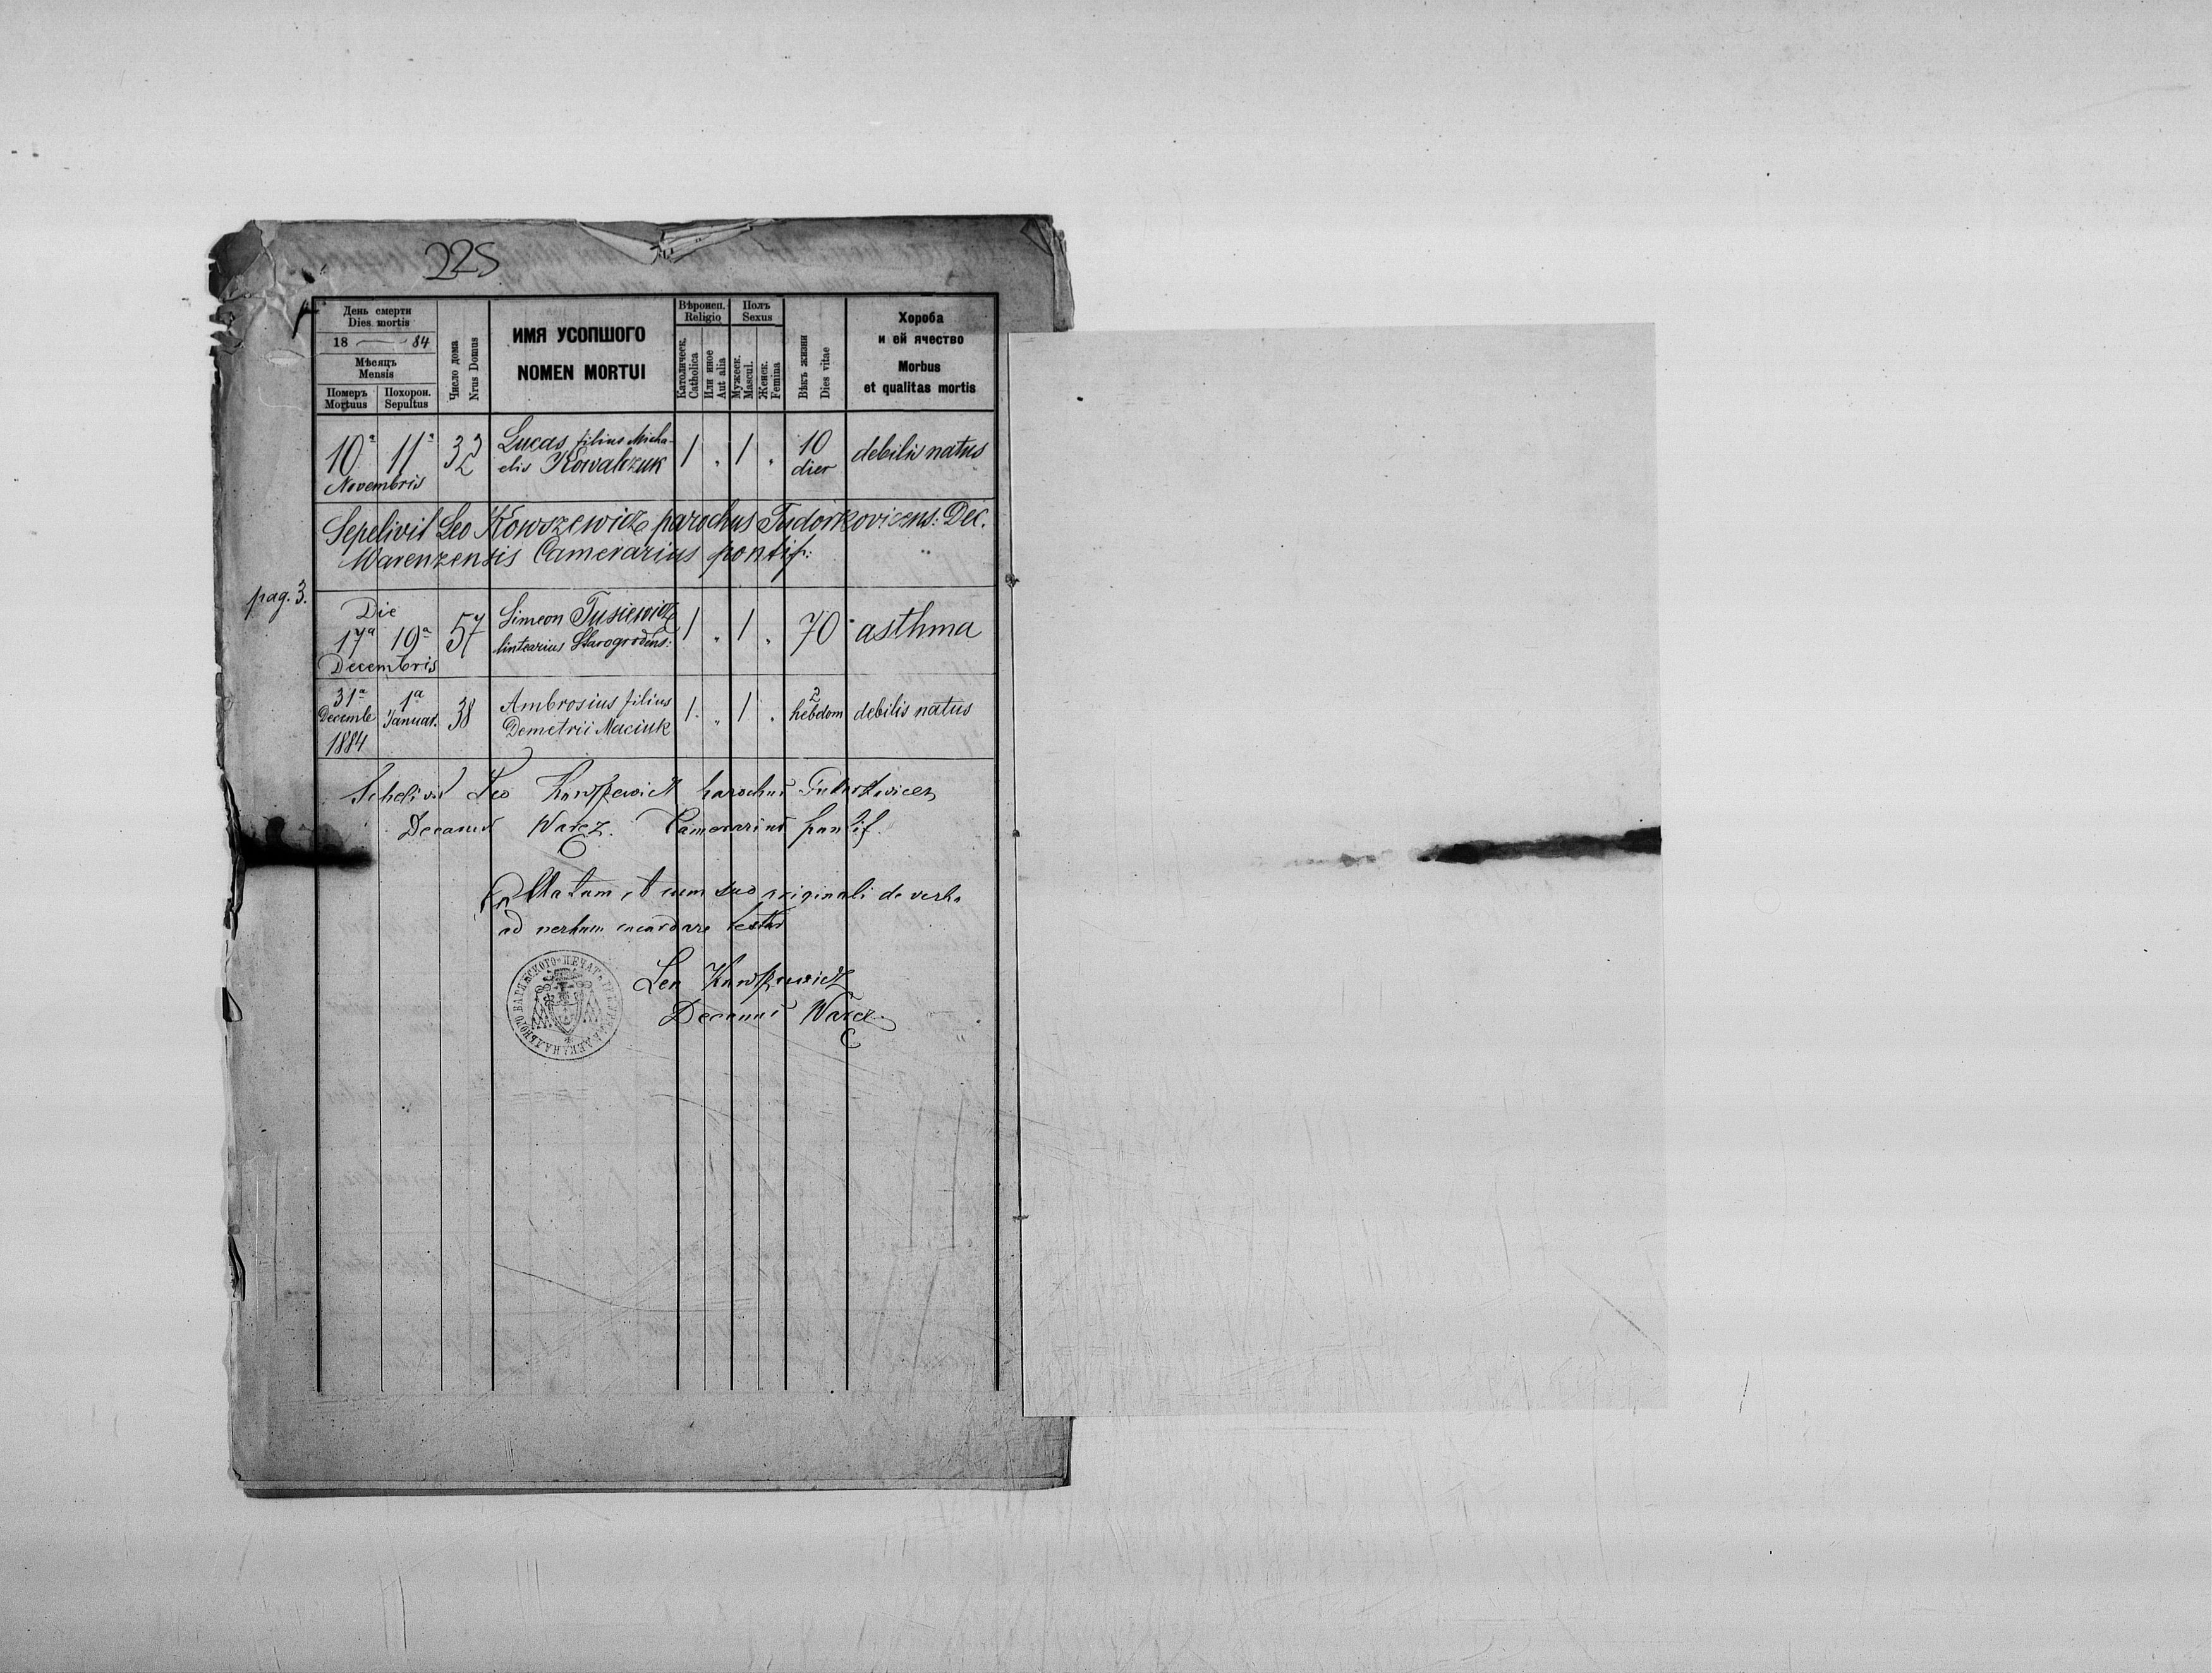 225
День смерти
Dies mortis
18 — 84
Мѣсяцъ
Mensis
Померъ
Mortuus
Похорон.
Sepultus
Число дома
Nrus Domus
ИМЯ УСОПШОГО
NOMEN MORTUI
Вѣроисп.
Religio
Католическ.
Catholica
Или иное
Aut alia
Полъ
Sexus
Мужеск.
Mascul.
Женск.
Femina
Вѣкъ жизни
Dies vitae
Хороба
и ей ячество
Morbus
et qualitas mortis
10ª 11ª Novembris 32 Lucas filius Micha-
elis Kowalczuk 1 " 1 " 10 dier debilis natus
Sepelivit Leo Kowszewicz parochus Tudorkovicens: Dec.
Warenzensis Camerarius pontif:
pag. 3.
Die
17ª 19ª Decembris 57 Simeon Tusiewicz
lintearius Starogrodens: 1 " 1 " 70 asthma
31ª Decemb 1884 1ª Januar. 38 Ambrosius filius
Demetrii Maciuk 1. " 1 " 2 hebdom debilis natus
Sepelivit Leo Kowszewicz parochus Tudorkovicen
Decanus Waręz. Camerarius pontif.
Collatam et cum suo originali de verbo
ad verbum concordare testor
Leo Kowszewicz
Decanus Waręz.